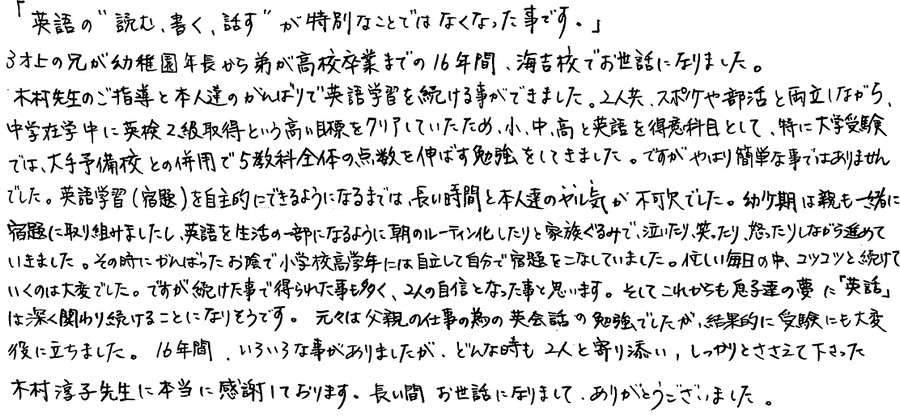 「英語の"読む、書く、話す"が特別なことではなくなった事です。」
3才上の兄が幼稚園年長から弟が高校卒業までの16年間、海吉校でお世話になりました。
木村先生のご指導と本人達のがんばりで英語学習を続ける事ができました。2人共、スポ少や部活と両立しながら、
中学在学中に英検2級取得という高い目標をクリアしていたため、小、中、高と英語を得意科目として、特に大学受験
では、大手予備校との併用で5教科全体の点数を伸ばす勉強をしてきました。ですがやはり簡単な事ではありません
でした。英語学習(宿題)を自主的にできるようになるまでは、長い時間と本人達のやる気が不可欠でした。幼少期は親も一緒に
宿題に取り組みましたし、英語を生活の一部になるように朝のルーティン化したりと家族ぐるみで、泣いたり、笑ったり、怒ったりしながら進めて
いきました。その時にがんばったお陰で小学校高学年には自立して自分で宿題をこなしていました。忙しい毎日の中、コツコツと続けて
いくのは大変でした。ですが続けた事で得られた事も多く、2人の自信となった事と思います。そしてこれからも息子達の夢に「英語」
は深く関わり続けることになりそうです。元々は父親の仕事の為の英会話の勉強でしたが、結果的に受験にも大変
役に立ちました。16年間、いろいろな事がありましたが、どんな時も2人と寄り添い、しっかりとささえて下さった
木村淳子先生に本当に感謝しております。長い間お世話になりまして、ありがとうございました。